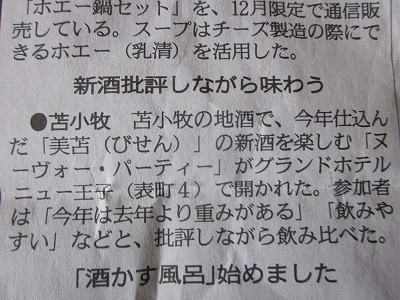 「ホエー鍋セット」を、12月限定で通信販
売している。スープはチーズ製造の際にで
きるホエー（乳清）を活用した。
新酒批評しながら味わう
●苫小牧　苫小牧の地酒で、今年仕込ん
だ「美苫（びせん）」の新酒を楽しむ「ヌ
ーヴォー・パーティー」がグランドホテル
ニュー王子（表町４）で開かれた。参加者
は「今年は去年より重みがある」「飲みや
すい」などと、批評しながら飲み比べた。
「酒かす風呂」始めました